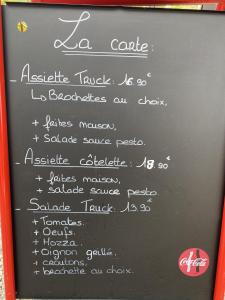 La carte:
- Assiette Truck: 16.90€
↳ Brochettes au choix,
+ frites maison,
+ Salade sauce pesto.
- Assiette côtelette: 18.90€
+ frites maison,
+ salade sauce pesto
- Salade Truck: 13.90€
+ Tomates.
+ Oeufs.
+ Mozza.
+ Oignon grillé.
+ croutons
+ brochette au choix.
Coca-Cola